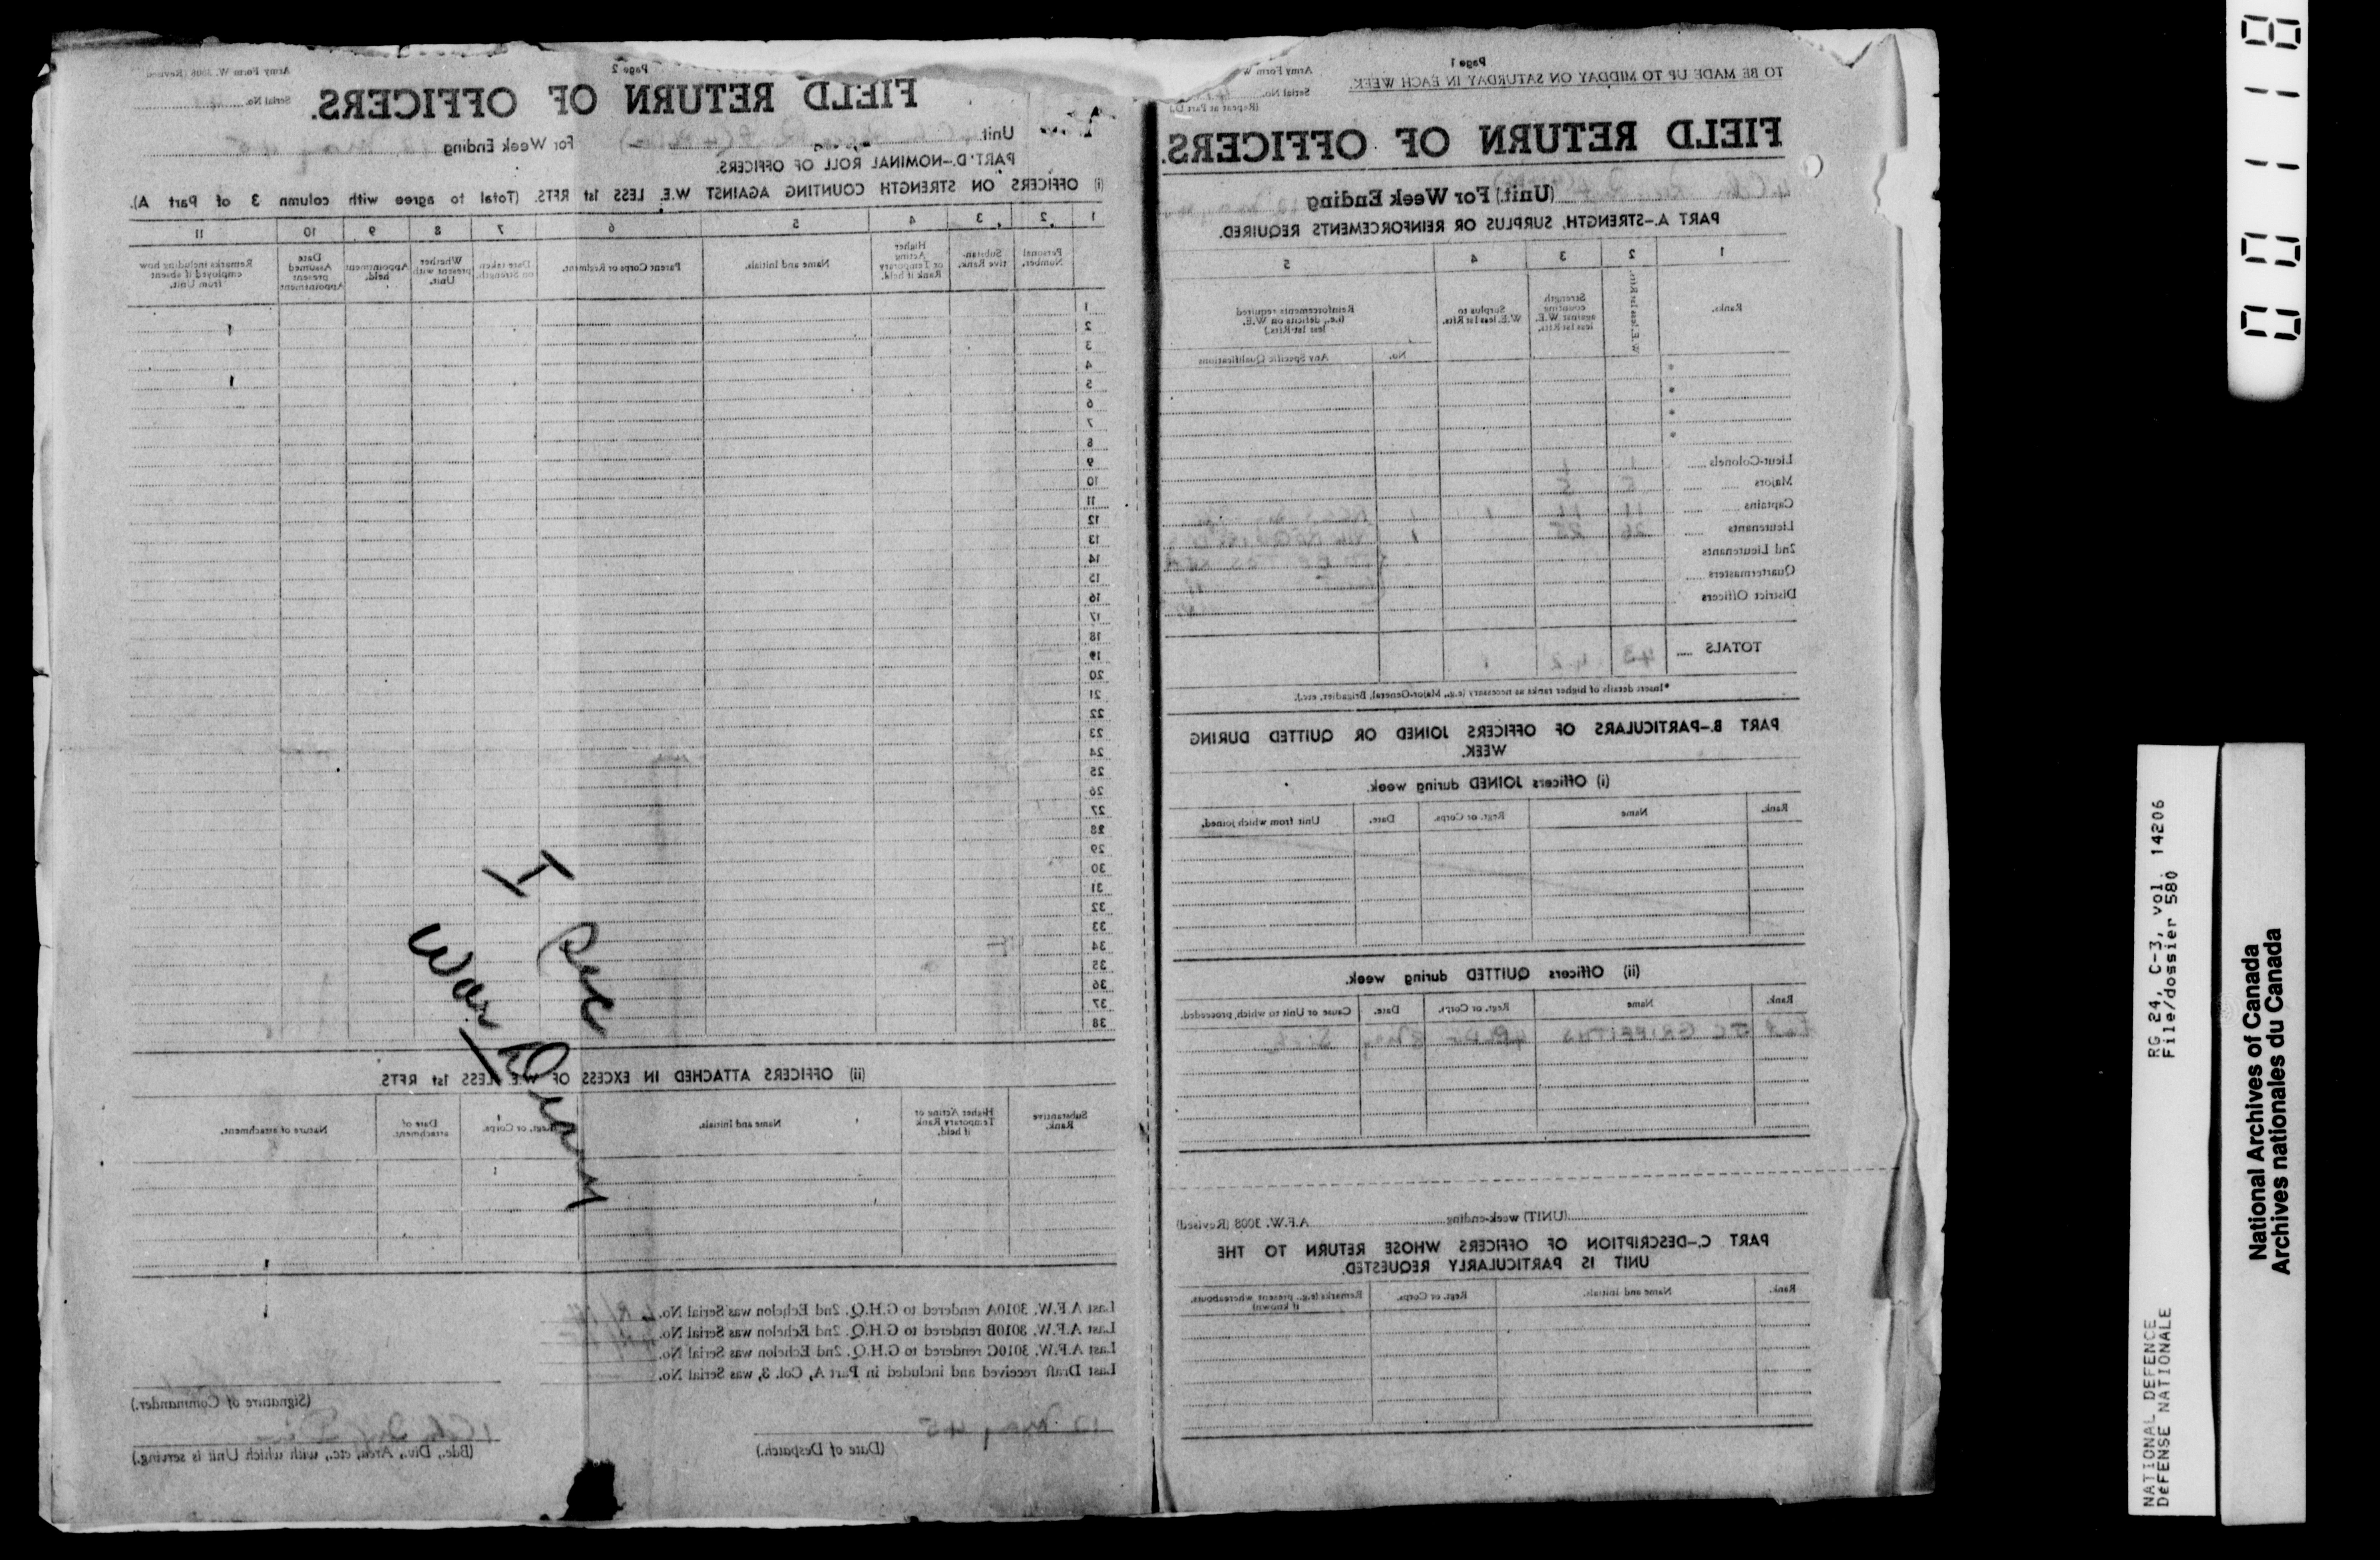 Page 2
Army Form W. 3008 (Revised)
FIELD RETURN OF OFFICERS.
Serial No.
Unit
For Week Ending 12 May 45
PART D.—NOMINAL ROLL OF OFFICERS.
(i) OFFICERS ON STRENGTH COUNTING AGAINST W.E. LESS 1st RFTS. (Total to agree with column 3 of Part A).
1 2 3 4 5 6 7 8 9 10 11
Personal Number.
Substantive Rank.
Higher Acting or Temporary Rank if held.
Name and Initials.
Parent Corps or Regiment.
Date taken on Strength.
Whether present with Unit.
Appointment held.
Date Assumed present Appointment
Remarks including how employed if absent from Unit.
1
2
3
4
5
6
7
8
9
10
11
12
13
14
15
16
17
18
19
20
21
22
23
24
25
26
27
28
29
30
31
32
33
34
35
36
37
38
I Sec
War Diary
(ii) OFFICERS ATTACHED IN EXCESS OF W.E. LESS 1st RFTS
Substantive Rank.
Higher Acting or Temporary Rank if held.
Name and Initials.
Regt. or Corps.
Date of attachment.
Nature of attachment.
Last A.F.W. 3010A rendered to G.H.Q. 2nd Echelon was Serial No.
Last A.F.W. 3010B rendered to G.H.Q. 2nd Echelon was Serial No.
Last A.F.W. 3010C rendered to G.H.Q. 2nd Echelon was Serial No.
Last Draft received and included in Part A, Col. 3, was Serial No.
(Signature of Commander.)
12 May 45
(Date of Despatch.)
1 Cdn Inf Div
(Bde., Div., Area, etc., with which Unit is serving.)
Page 1
TO BE MADE UP TO MIDDAY ON SATURDAY IN EACH WEEK.
Army Form W
Serial No.
(Repeat at Part D.)
FIELD RETURN OF OFFICERS.
(Unit) For Week Ending 12 May
PART A.—STRENGTH, SURPLUS OR REINFORCEMENTS REQUIRED.
1 2 3 4 5
Ranks.
W.E. less 1st Rftn.
Strength counting against W.E. less 1st Rfts.
Surplus to W.E. less 1st Rfts.
Reinforcements required (i.e., deficits on W.E. less 1st Rfts.)
No.
Any Specific Qualifications
*
*
*
*
Lieut-Colonels 1 1
Majors 5 5
Captains 11 11 1 1
Lieutenants 26 25 1
2nd Lieutenants
Quartermasters
District Officers
TOTALS 43 42 1
*Insert details of higher ranks as necessary (e.g., Major-General, Brigadier, etc.).
PART B.—PARTICULARS OF OFFICERS JOINED OR QUITTED DURING WEEK.
(i) Officers JOINED during week.
Rank.
Name
Regt. or Corps.
Date.
Unit from which joined.
(ii) Officers QUITTED during week.
Rank.
Name
Regt. or Corps.
Date.
Cause or Unit to which proceeded.
GRIFFITHS 4PLDG May Sick
(UNIT) week-ending A.F.W. 3008 (Revised)
PART C.—DESCRIPTION OF OFFICERS WHOSE RETURN TO THE UNIT IS PARTICULARLY REQUESTED.
Rank.
Name and Initials.
Regt. or Corps.
Remarks (e.g., present whereabouts, if known)
000118
RG 24, C-3, vol. 14206
File/dossier 580
NATIONAL DEFENCE
DéFENSE NATIONALE
National Archives of Canada
Archives nationales du Canada